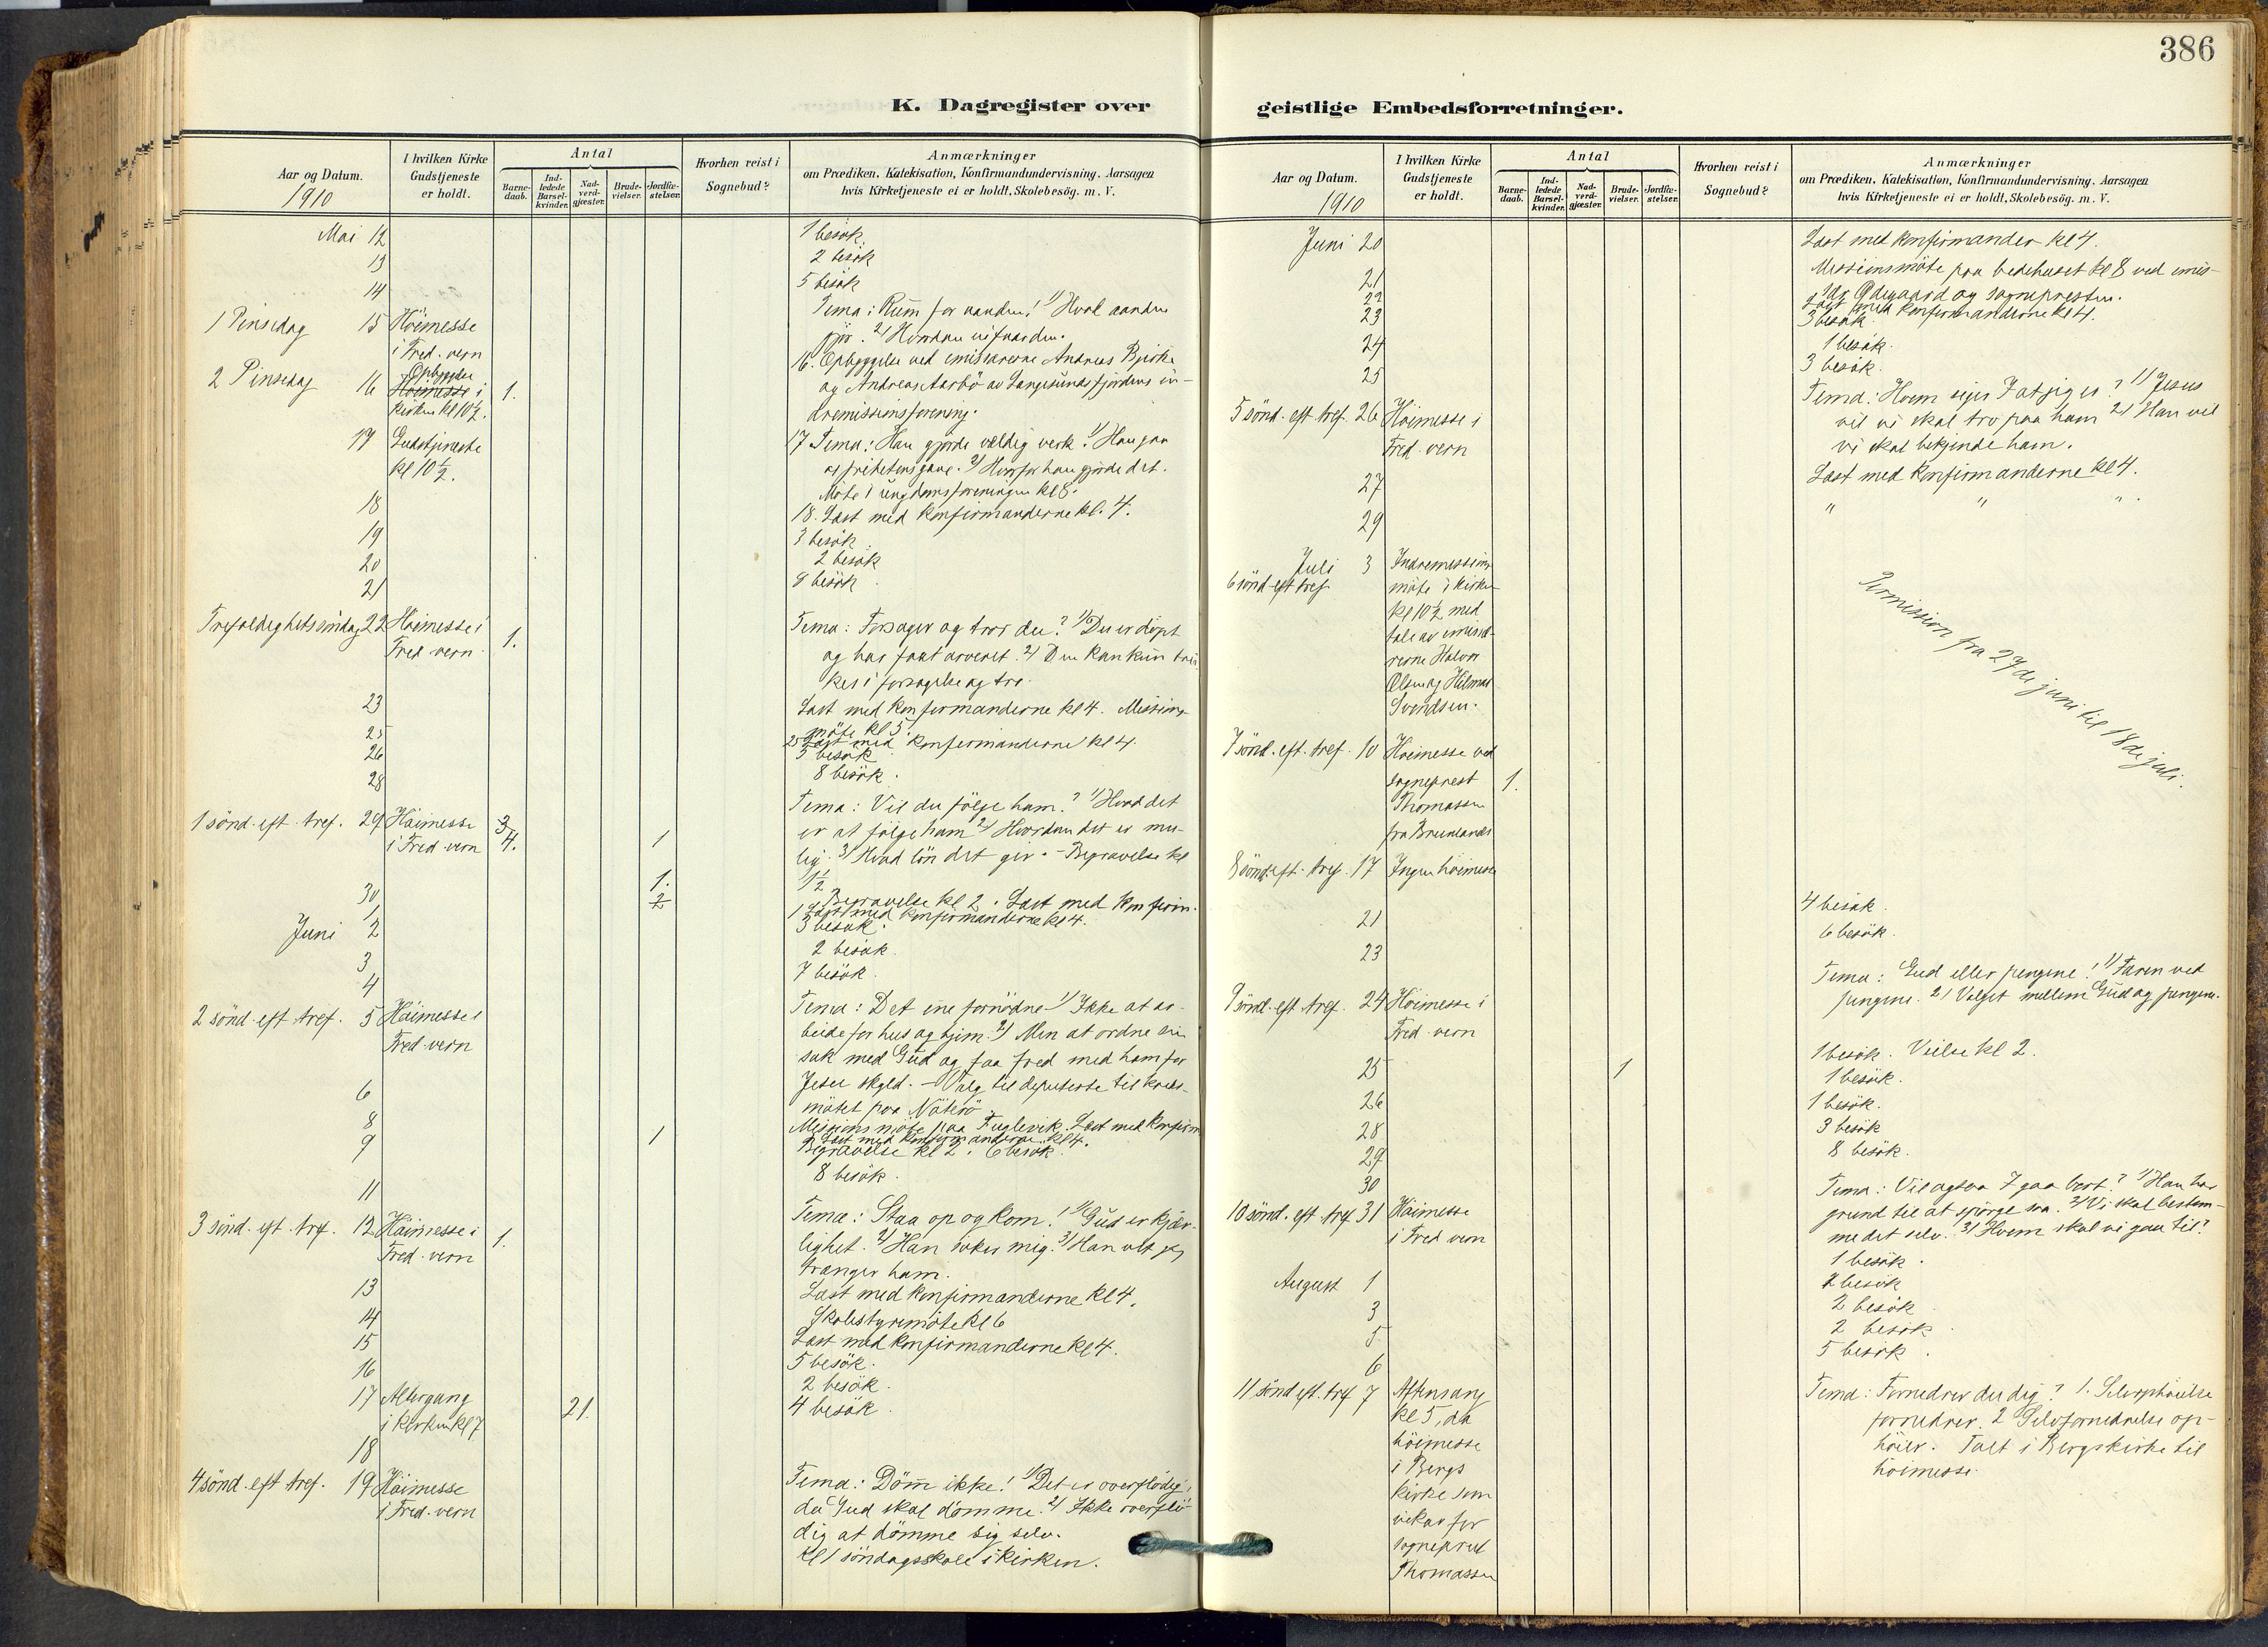 386
K. Dagregister over
geistlige Embedsforretninger.
Aar og Datum.
1910
I hvilken Kirke
Gudstjeneste
er holdt.
Antal
Barne-
daab.
Ind-
ledede
Barsel-
kvinder.
Nad-
verd-
gjæster.
Brude-
vielser.
Jordfæ-
stelser.
Hvorhen reist i
Sognebud?
Anmærkninger
om Prædiken, Katekisation, Konfirmandundervisning, Aarsagen
hvis Kirketjeneste ei er holdt, Skolebesög. m. V.
Mai 12 1 besøk.
13 2 besøk
14 5 besøk
1 Pinsedag 15 Höimesse
i Fred. vern
Tema: Rum for aanden! 1) Hvad aanden
gjør. 2) Hvordan vi faar den.
2 Pinsedag 16 Opbyggelse
Höimesse i
kirken kl 10½. 1.
16. Opbyggelse ved emissærerne Andreas Bjerke
og Andreas Aarbö av Langesundsfjordens in-
dremissionsforening.
17 Gudstjeneste
kl 10½.
17 Tema: Han gjorde vældig verk! 1) Han gav
os frihetens gave. 2) Hvorfor han gjorde det.
Möte i ungdomsforeningen kl 8.
18 18. Læst med konfirmanderne kl. 4.
19 3 besök
20 2 besök
21 8 besök
Trefoldighetssöndag 22 Höimesse i
Fred. vern 1.
Tema: Forsager og tror du? 1) Du er döpt
og har faat arveret. 2) Den kan kun
kes i forsagelse og tro.
23 Læst med konfirmanderne kl 4. Missions-
möte kl 5.
25 25 Læst med konfirmanderne kl 4.
26 5 besök
28 8 besök.
1 sönd. eft. tref. 29 Höimesse
i Fred. vern 3 4. 1
Tema: Vil du fölge ham? 1) Hvad det
er at fölge ham 2) Hvordan det er mu-
lig. 3) Hvad lön det gir. - Begravelse kl
1½
30 1. 2 Begravelse kl 2. Læst med konfirm.
1 1 Læst med konfirmanderne kl 4.
Juni 2 3 besök.
3 2 besök
4 7 besök.
2 sönd. eft. tref. 5 Höimesse i
Fred. vern
Tema: Det ene fornödne 1) Ikke at ar-
beide for hus og hjem. 2) Men at ordne sin
sak med Gud og faa fred med ham for
Jesu skyld. - Valg til deputerte til kreds-
mötet paa Nöterö.
6 Missionsmöte paa Fuglevik. Læst med konfirm
8 8 Læst med konfirmanderne kl 4.
9 1 Begravelse kl 2. 6 besök.
11 8 besök.
3 sönd. eft. tref. 12 Höimesse i
Fred. vern 1.
Tema: Staa op og kom! 1) Gud er kjær-
lighet. 2) Han söker mig. 3) Han vet jeg
trænger ham.
13 Læst med konfirmanderne kl 4.
14 Skolestyremöte kl 6
15 Læst med konfirmanderne kl 4.
16 5 besök.
17 Altergang
i kirken kl 7 21. 2 besök.
18 4 besök
4 sönd. eft. tref. 19 Höimesse
i Fred. vern
Tema: Döm ikke! 1) Det er overflödig,
da Gud skal dömme. 2) Ikke overflö-
dig at dömme sig selv.
Kl 1 söndagsskole i kirken.
Aar og Datum.
1910
I hvilken Kirke
Gudstjeneste
er holdt.
Antal
Barne-
daab.
Ind-
ledede
Barsel-
kvinder.
Nad-
verd-
gjæster.
Brude-
vielser.
Jordfæ-
stelser.
Hvorhen reist i
Sognebud?
Anmærkninger
om Prædiken, Katekisation, Konfirmandundervisning, Aarsagen
hvis Kirketjeneste ei er holdt, Skolebesög. m. V.
Juni 20 Læst med konfirmander kl 4.
21 Missionsmöte paa bedehuset kl 8 ved emis-
sær Ödegaard og sognepresten.
22 Læst med konfirmanderne kl 4.
23 3 besök.
24 1 besök.
25 3 besök.
5 sönd. eft. tref. 26 Höimesse i
Fred. vern
Tema: Hvem siger I at jeg er? 1) Jesus
vil vi skal tro paa ham 2) Han vil
vi skal bekjende ham.
27 Læst med konfirmanderne kl 4.
29 " " ".
Juli 3
6 sönd. eft tref.
Indremissions-
möte i kirken
kl 10½ med
tale av emisæ-
rerne Halvor
Olsen og Hilmar
Svendsen.
Permission fra 27de juni til 18de juli.
7 sönd. eft. tref. 10 Höimesse ved
sogneprest
Thomassen
fra Brunlanes 1.
8 sönd. eft. tref. 17 Ingen höimesse
21 4 besök.
23 6 besök.
9 sönd. eft tref. 24 Höimesse i
Fred. vern
Tema: Gud eller pengene! 1) Faren ved
pengene. 2) Valget mellem Gud og pengene.
25 1 1 besök. Vielse kl 2.
26 1 besök.
28 1 besök.
29 3 besök
30 8 besök.
10 sönd. eft. tref 31 Höimesse
i Fred vern
Tema: Vil ogsaa I gaa bort? 1) Han har
grund til at spörge saa. 2) Vi skal bestem-
me det selv. 3) Hvem skal vi gaa til?
1 besök.
August 1 2 besök
3 2 besök
5 2 besök
6 5 besök.
11 sönd eft. tref 7 Aftensang
kl 5, da
höimesse
i Bergs
kirke som
vikar for
sogneprest
Thomassen
Tema: Fornedrer du dig? 1. Selvophöielse
fornedrer. 2 Selvfornedrelse op-
höier. Talt i Bergs kirke til
höimesse.